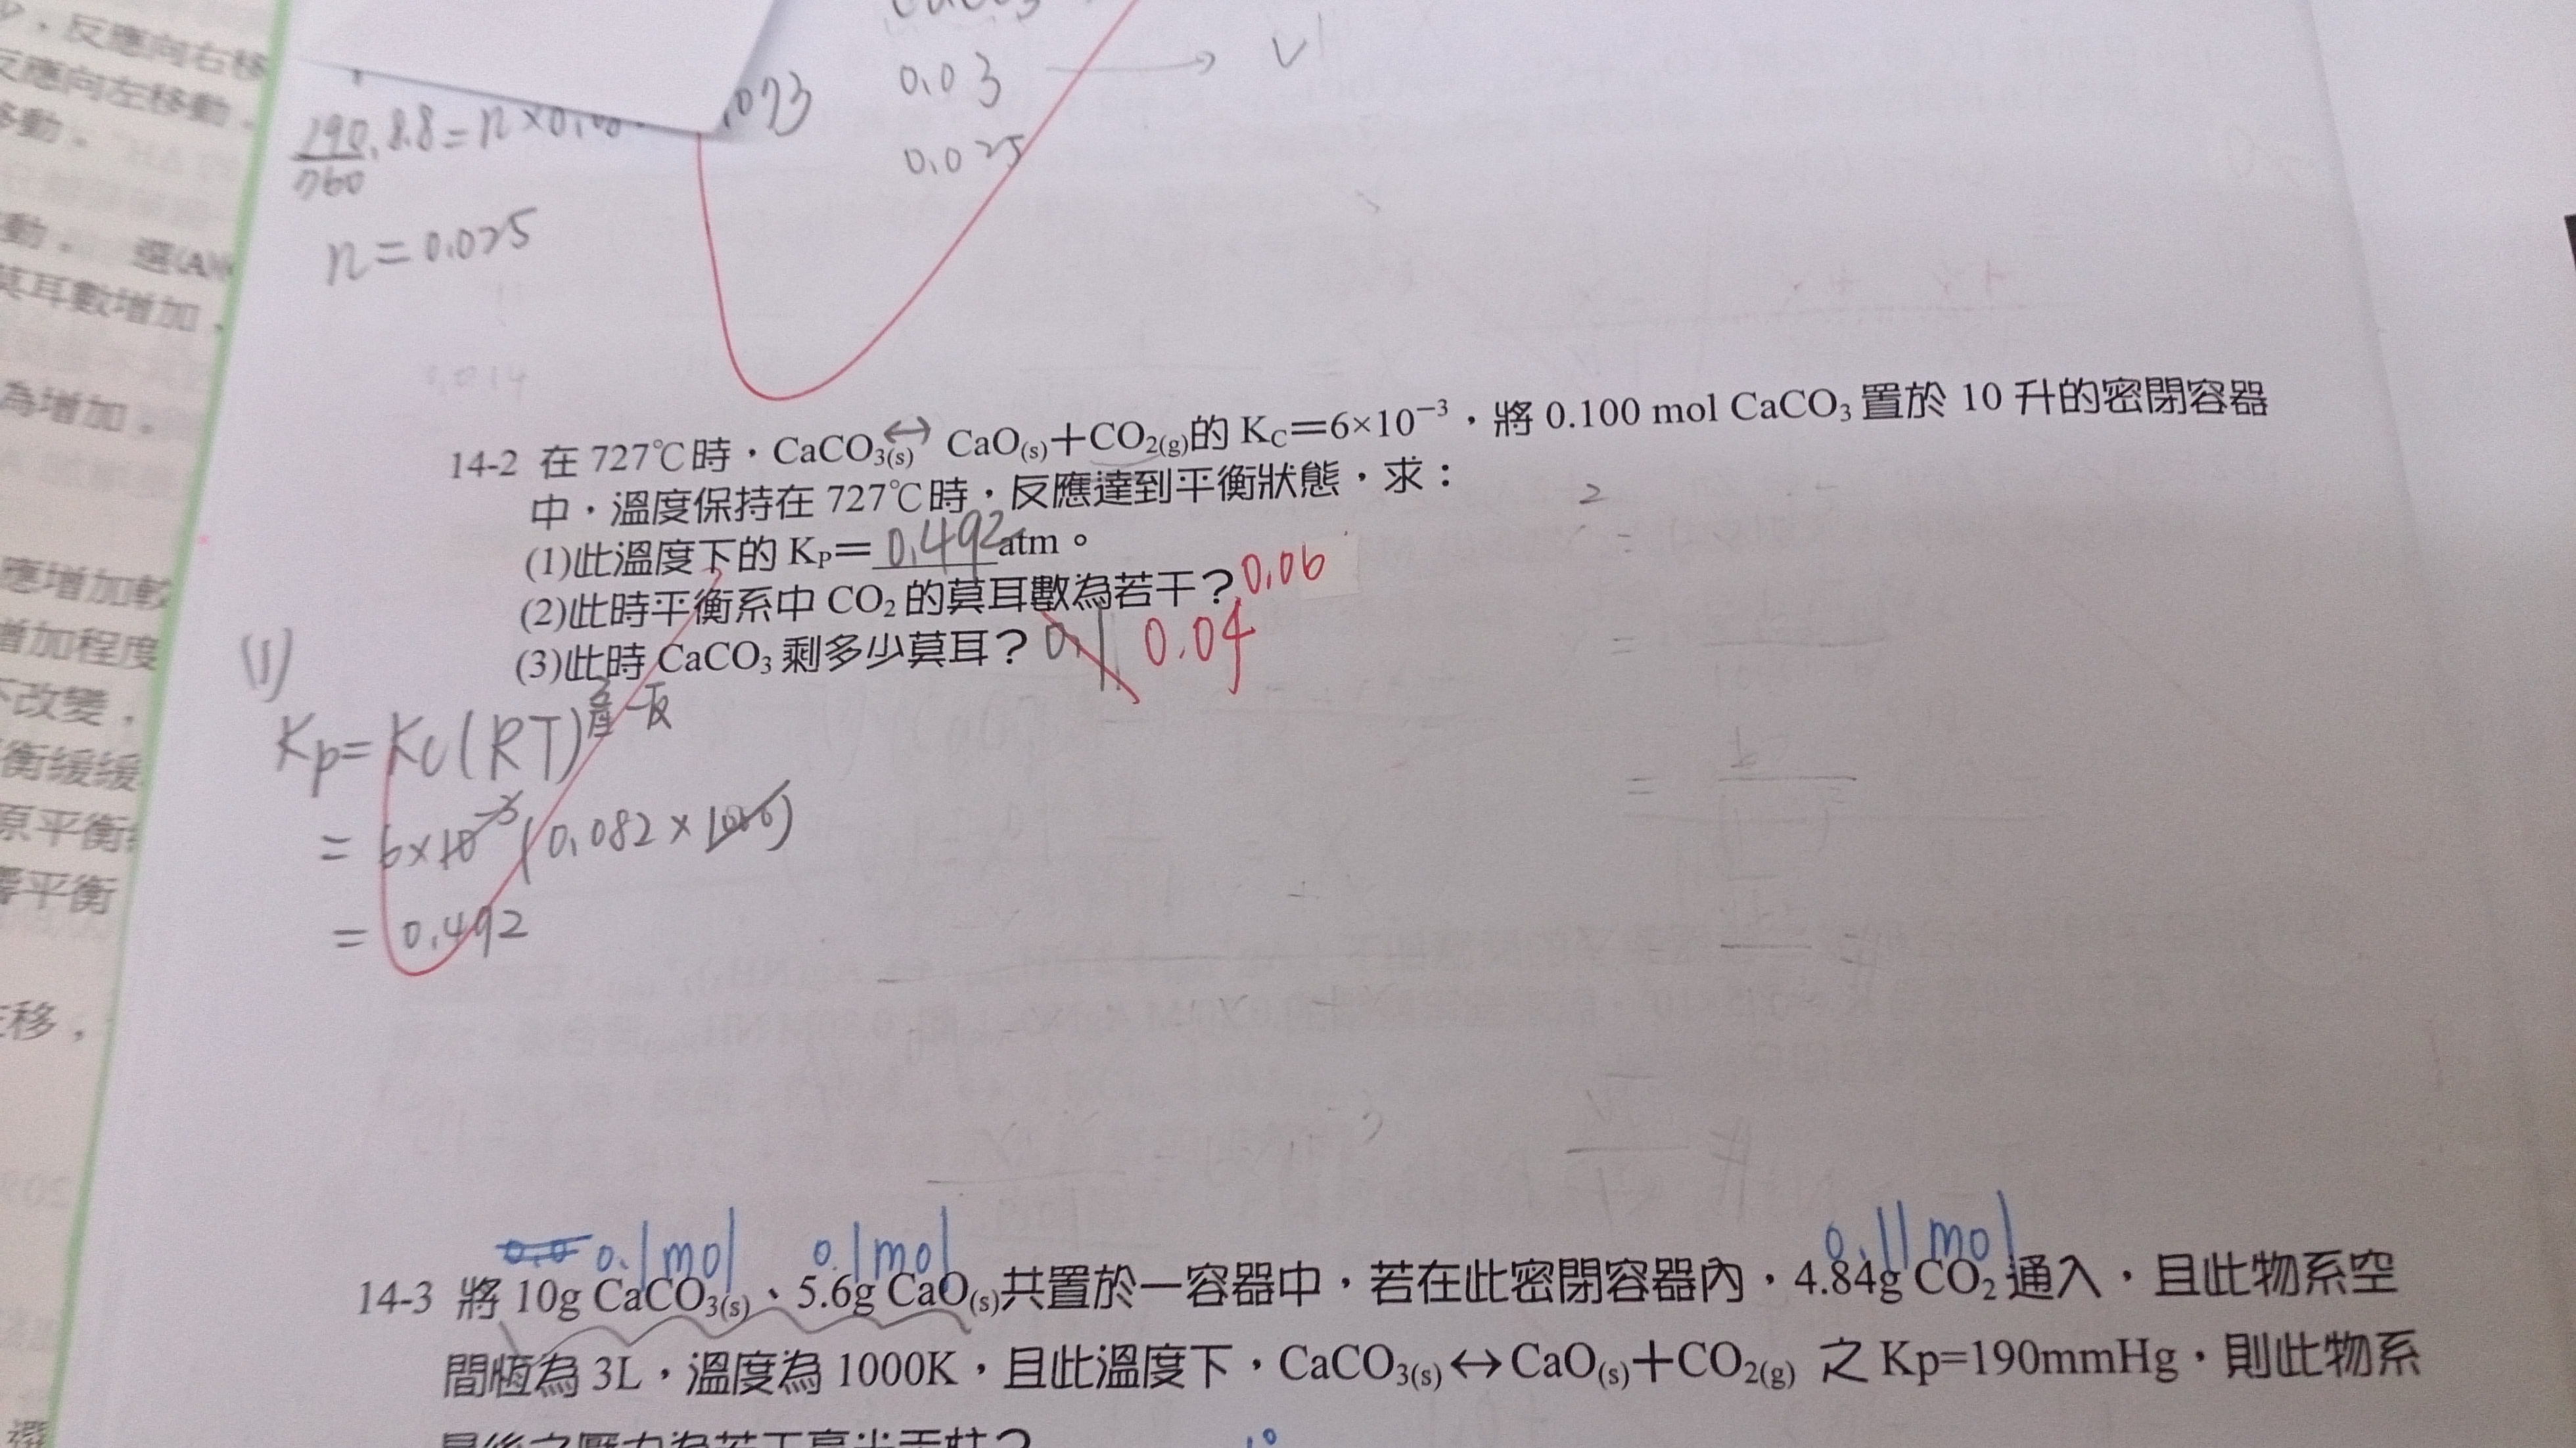 反應向右移
反應向左移動，
移動。
動。 選(A)
莫耳數增加，
為增加。
應增加較
增加程度
不改變，
衡緩緩
原平衡
響平衡
左移，
選
0.03 → V
0.025
190/760 . 8.8 = n×0.0
n = 0.025
14-2 在 727℃時，CaCO3(s)↔ CaO(s)＋CO2(g)的 KC＝6×10⁻³，將 0.100 mol CaCO3 置於 10 升的密閉容器
中，溫度保持在 727℃時，反應達到平衡狀態，求：
(1)此溫度下的 KP＝ 0.492 atm。
(2)此時平衡系中 CO2 的莫耳數為若干？0.06
(3)此時 CaCO3 剩多少莫耳？ 0.1 0.04
(1)
Kp= Kc(RT)產-反
= 6×10⁻³(0.082×1000)
= 0.492
0.0 0.1mol 0.1mol 0.11mol
14-3 將 10g CaCO3(s)、5.6g CaO(s)共置於一容器中，若在此密閉容器內，4.84g CO2 通入，且此物系空
間恆為 3L，溫度為 1000K，且此溫度下，CaCO3(s)↔CaO(s)＋CO2(g) 之 Kp=190mmHg，則此物系